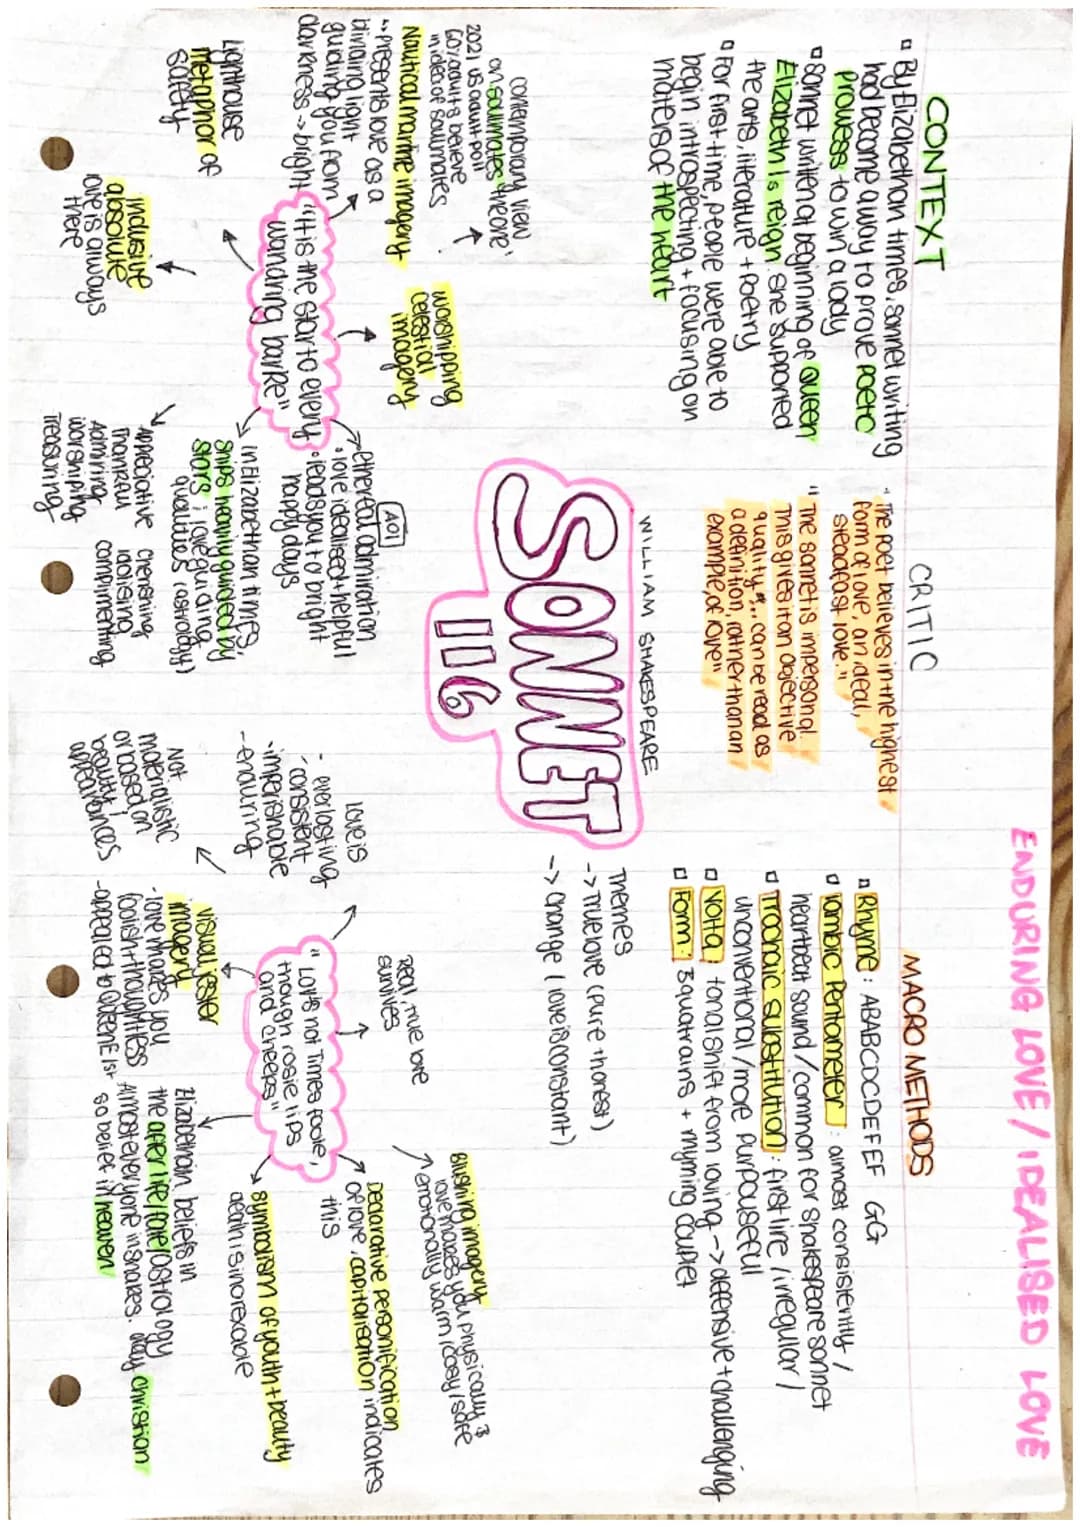 ENDURING LOVE / IDEALISED LOVE
CONTEXT
▫ By Elizabethan times, sonnet writing
had become a way to prove poetic
prowess to win a lady
▫ Sonnet written at beginning of Queen
Elizabeth Is reign. She supported
the arts, literature + poetry
▫ For first time, people were able to
begin introspecting + focusing on
maters of the heart
CRITIC
"The poet believes in the highest
form of love, an ideal,
steadfast love."
"The sonnet is impersonal.
This gives it an objective
quality"... can be read as
a definition, rather than an
example, of love"
MACRO METHODS
▫ Rhyme: ABABCDCDEFEF GG
▫ Iambic Pentameter: almost consistently /
heartbeat sound / common for shakespeare sonnet
▫ Trochaic substitution: first line / irregular /
unconventional / more purposefull
▫ Volta: tonal shift from loving -> defensive + challenging
▫ Form: 3 quatrains + rhyming couplet
WILLIAM SHAKESPEARE
SONNET
116
Themes
-> True love (pure + honest)
-> change (love is constant)
contemporary view
on soulmates + 'the one'
2021 US adult poll
60% adults believe
in idea of soulmates
Nautical marine imagery
- presents love as a
blinding light
guiding you from
darkness -> bright
worshipping
celestial
imagery
"It is the star to every
wandring barke"
Lighthouse
metaphor of
safety
inclusive
absolute
love is always
there
AO1
ethereal admiration
• love idealised + helpful
• leads you to bright
happy days
in Elizabethan times,
ships heavily guided by
stars; love guiding
qualities (astrology)
Appreciative
Thankful
Admiring
worshiping
Treasuring
cherishing
idolising
complimenting
Love is
- everlasting
- consistent
- imperishable
- enduring
Real, true love
survives
Blushing imagery
love makes you physically &
emotionally warm / cosy / safe
"Lov's not Times foole,
though rosie lips
and cheeks"
Declarative personification
of love, capitalisation indicates
this
symbolism of youth + beauty
death is inorexable
Not
materialistic
or based on
beauty /
appearances
visual jester
imagery
- love makes you
foolish + thoughtless
- appealed to Queen E 1st
Elizabethan beliefs in
the after life / fate / astrology
Almost everyone in shakes. day christian
so belief in heaven